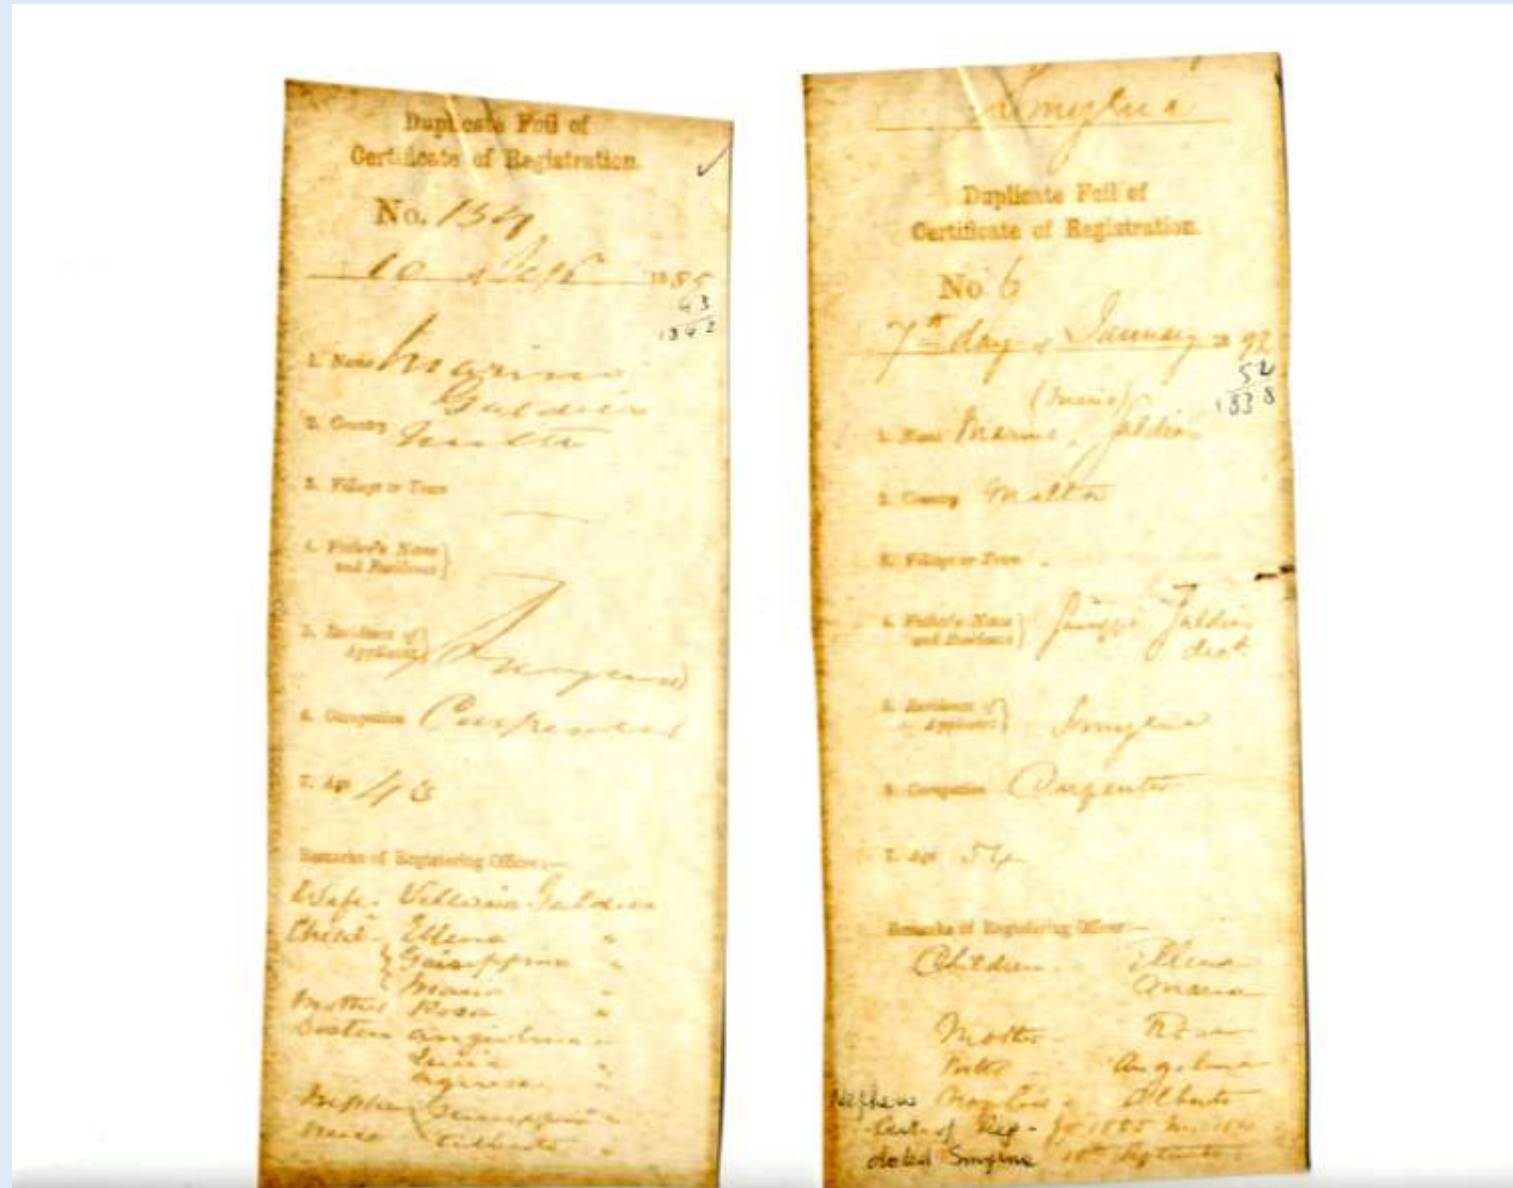 Duplicate Foil of
Certificate of Registration.
No. 154
10 Sept 1885
43
1842
1. Name Marino
Galdies
2. Country Malta
3. Village or Town
4. Father's Name
and Residence
5. Residence of
Applicant Smyrna
6. Occupation Carpenter
7. Age 43
Remarks of Registering Officer:—
Wife. Galdies
Child Ellena "
Maria "
Mother Rosa "
Sisters Angiolina "
"
Agnese "
Nephew "
Niece "
Smyrna
Duplicate Foil of
Certificate of Registration.
No 6
7th day of January 1892
54
1838
(Marino)
1. Name Galdies
2. Country Malta
3. Village or Town
4. Father's Name
and Residence Galdies
dect
5. Residence of
Applicant Smyrna
6. Occupation Carpenter
7. Age 54
Remarks of Registering Officer:—
Children Ellena
Maria
Mother Rosa
Angolina
Nephew Alberto
Cert. of Reg. for 1885 No. 154
dated Smyrna 10th September